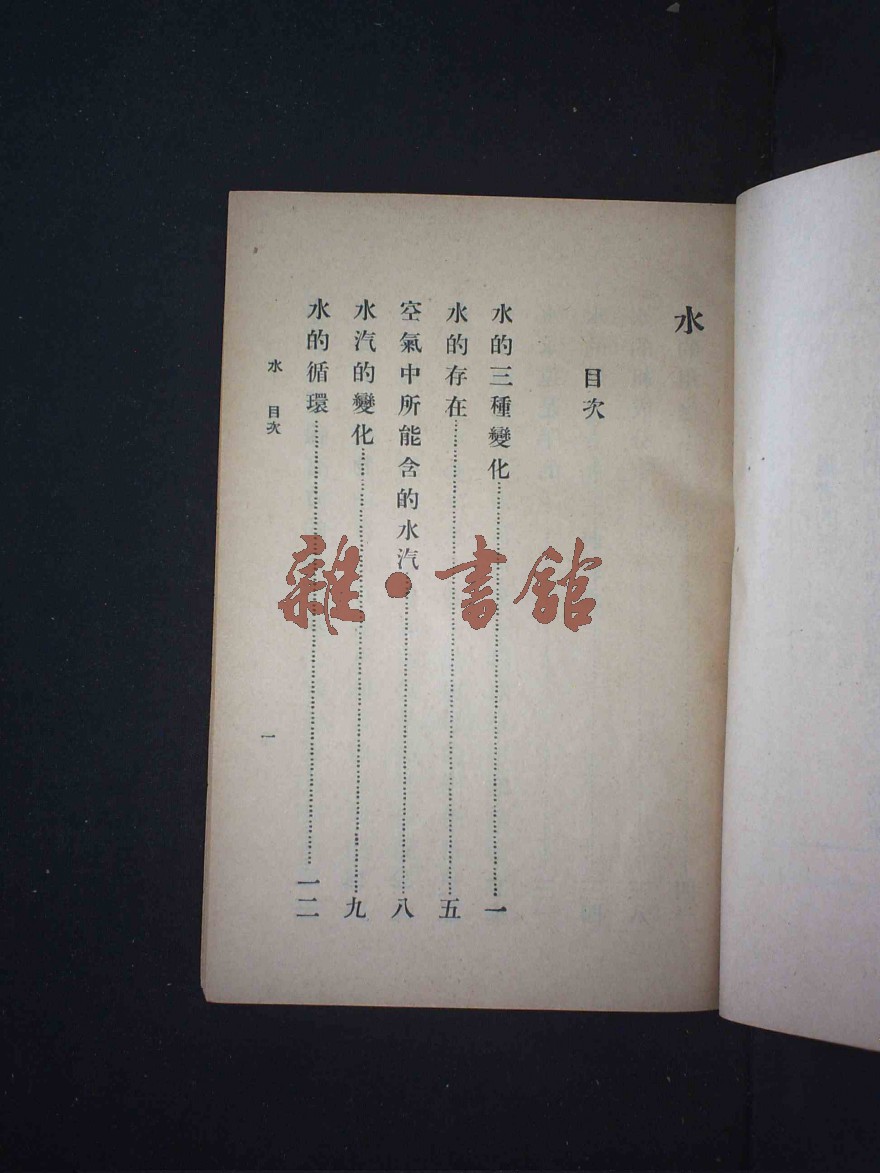 水
目次
水的三種變化……一
水的存在……五
空氣中所能含的水汽……八
水汽的變化……九
水的循環……一二
水 目次
一
雜·書館